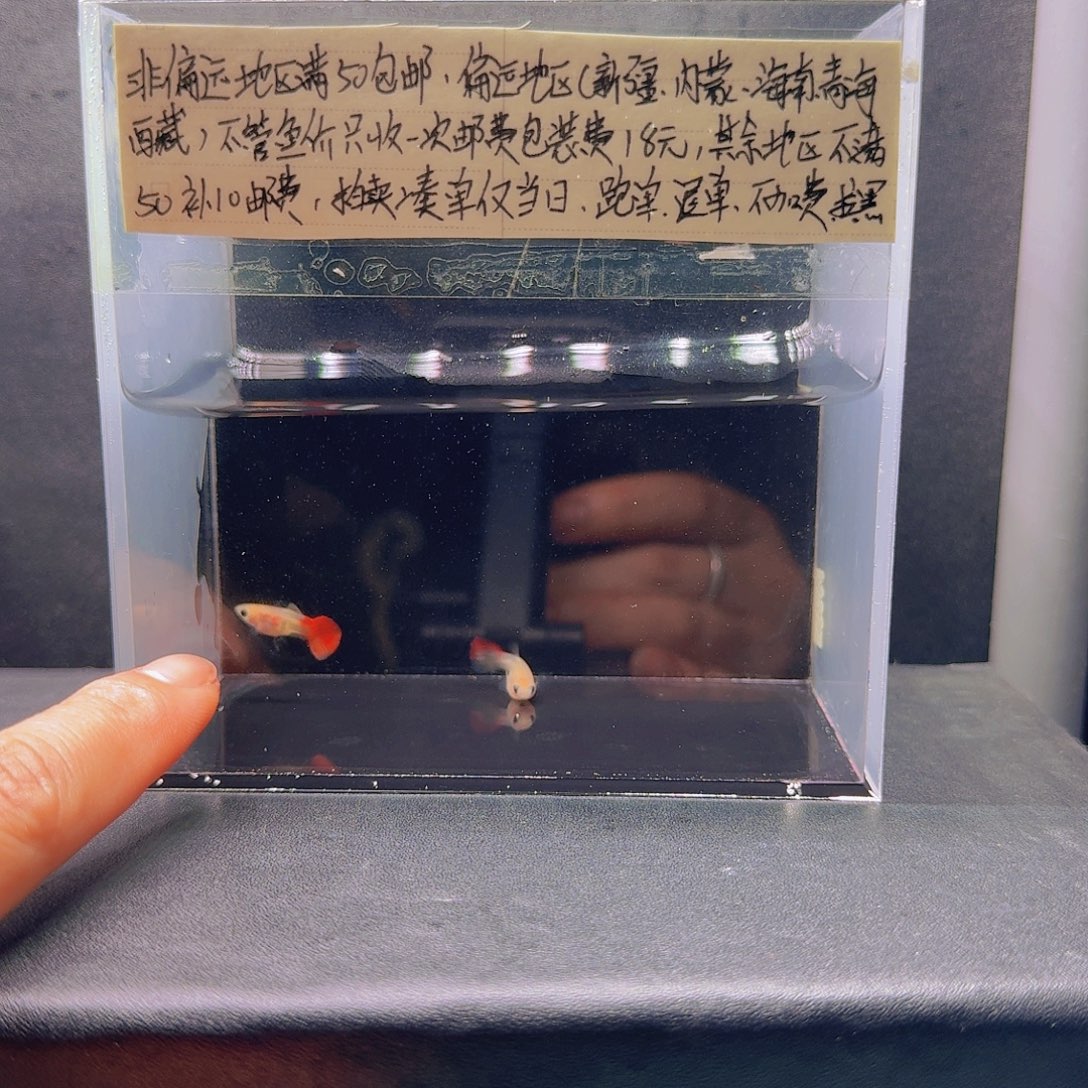 非偏远地区满50包邮，偏远地区（新疆、内蒙、海南、青海
西藏）不管鱼价只收一次邮费包装费18元，其余地区不满
50补10邮费，拍卖凑单仅当日、跑单、退单、不加费拉黑